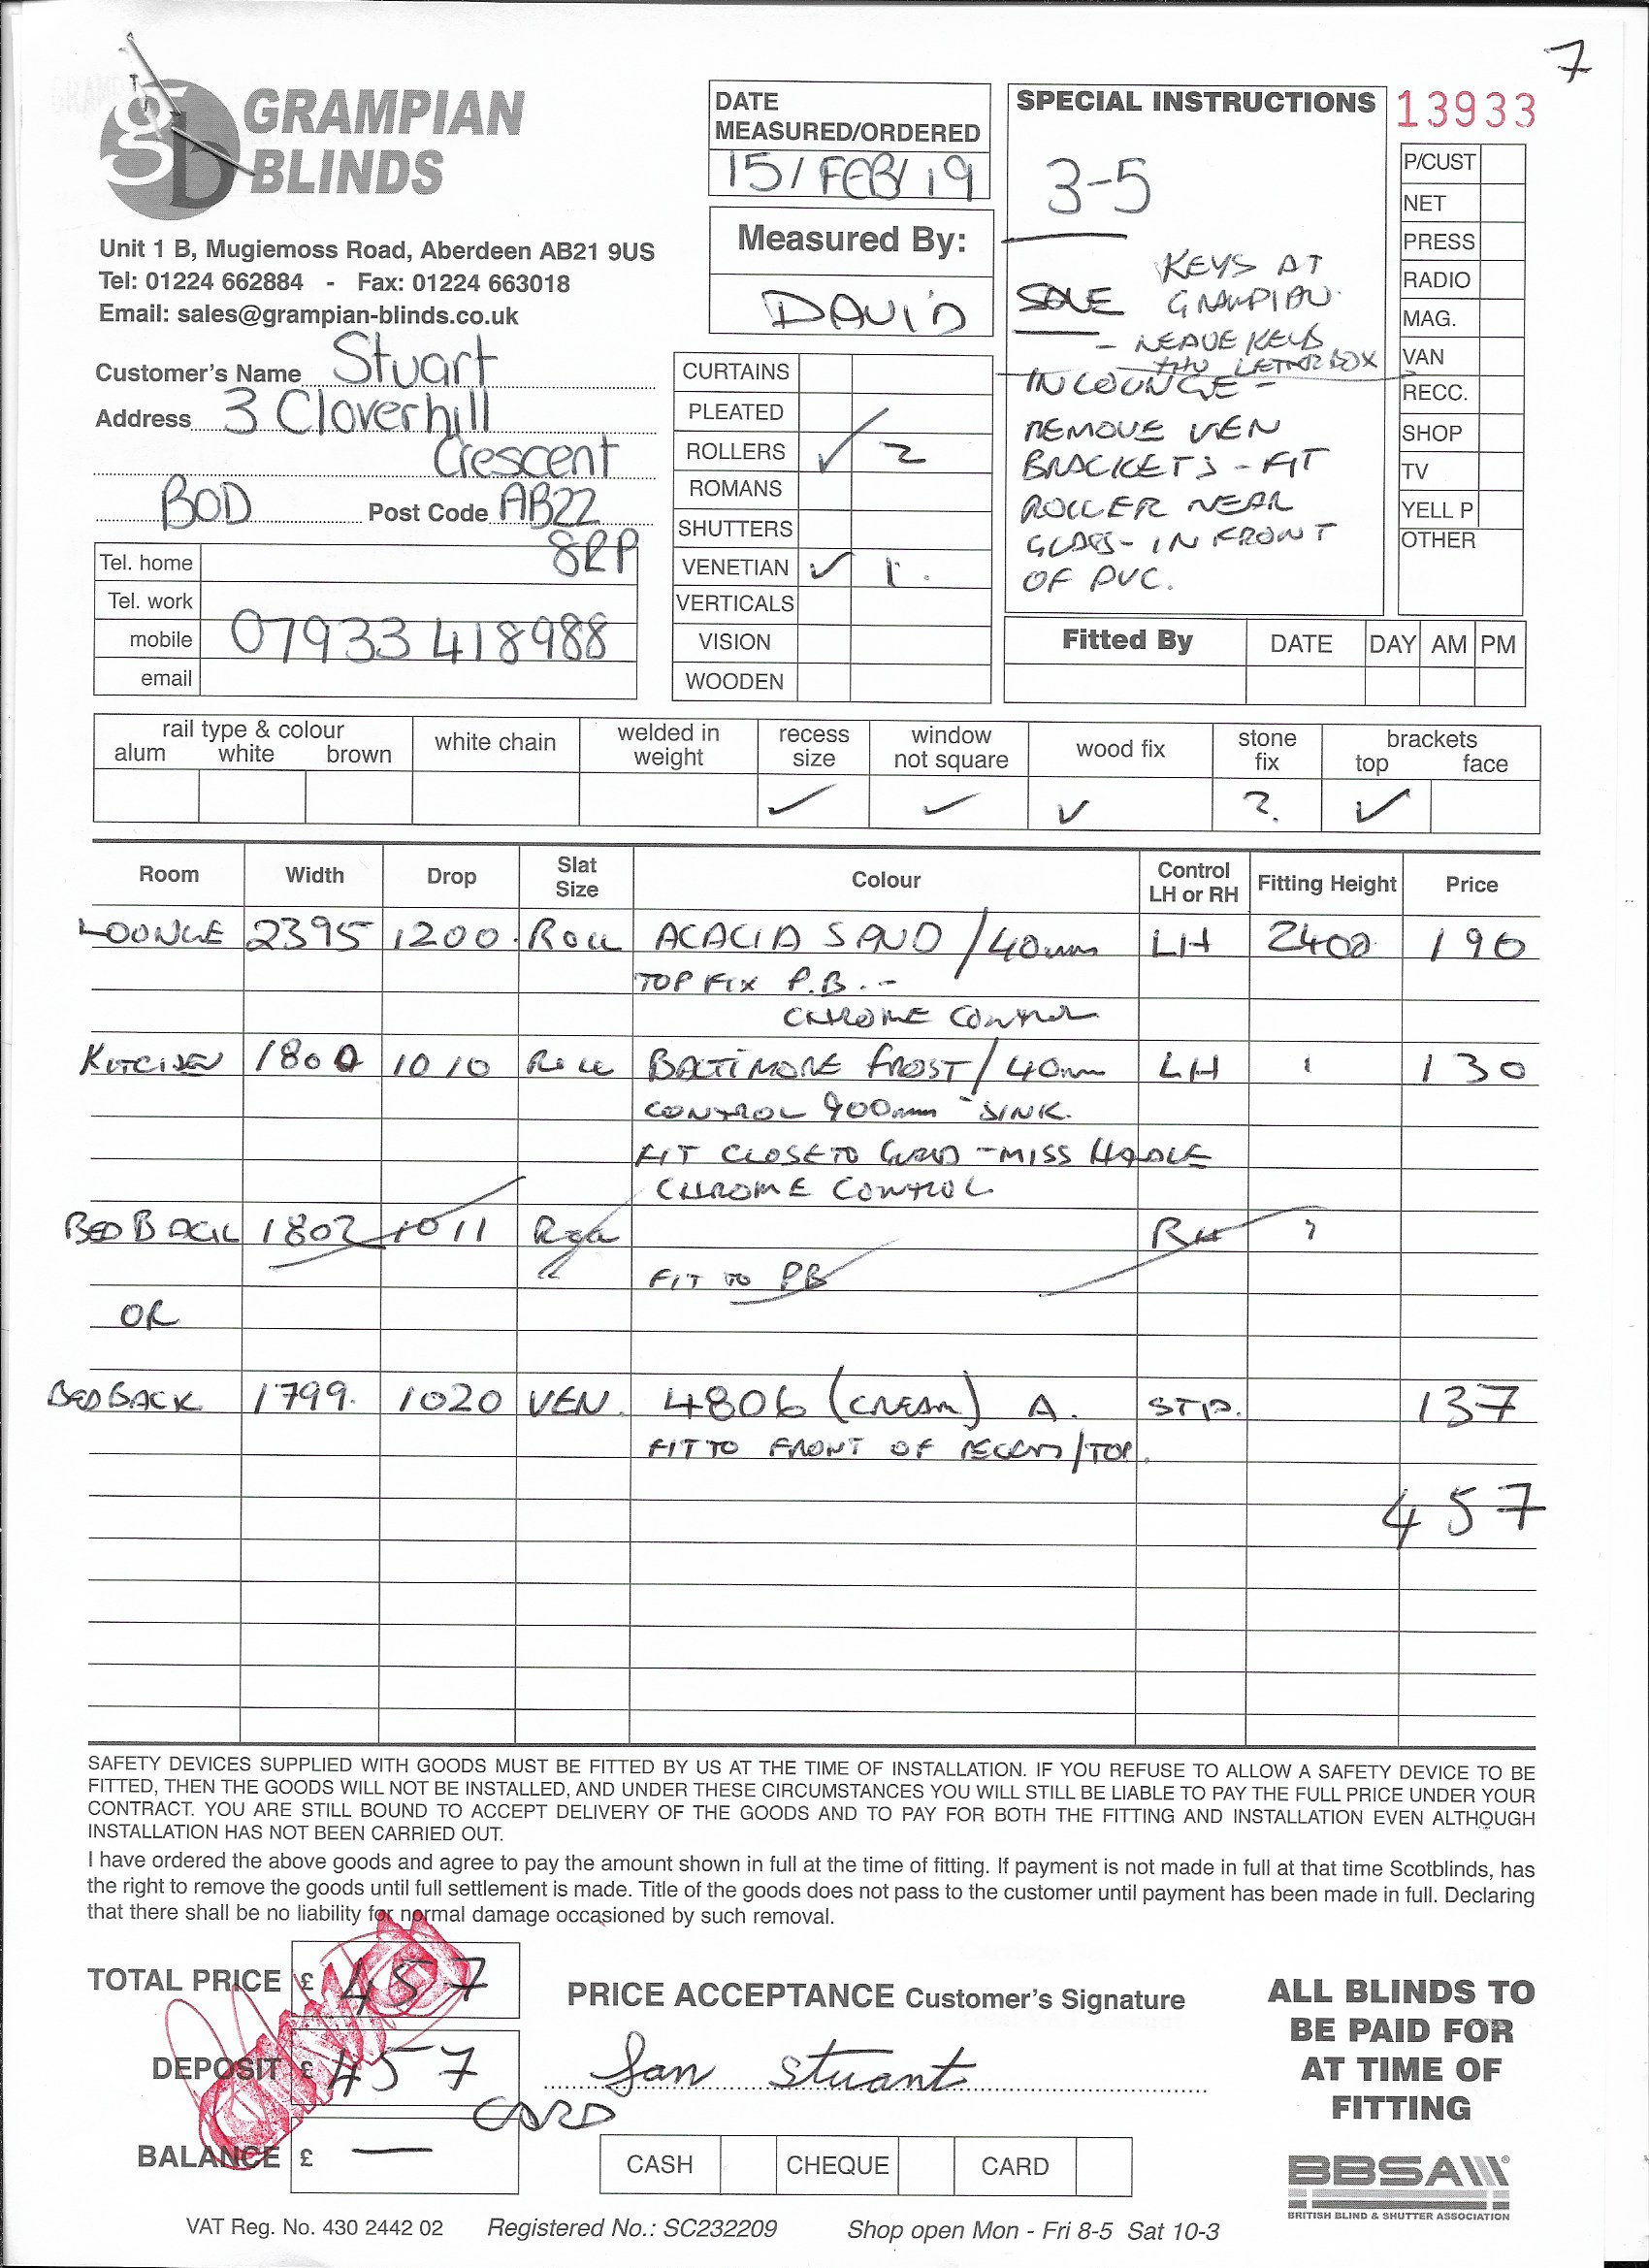 7
GRAMPIAN
BLINDS
Unit 1 B, Mugiemoss Road, Aberdeen AB21 9US
Tel: 01224 662884 - Fax: 01224 663018
Email: sales@grampian-blinds.co.uk
Customer's Name Stuart
Address 3 Cloverhill
Crescent
BOD Post Code AB22
8RP
Tel. home
Tel. work
mobile 07933 418988
email
DATE
MEASURED/ORDERED
15/FEB/19
Measured By:
DAVID
CURTAINS
PLEATED
ROLLERS ✓ 2
ROMANS
SHUTTERS
VENETIAN ✓ 1.
VERTICALS
VISION
WOODEN
SPECIAL INSTRUCTIONS
3-5
KEYS AT
GRAMPIAN.
- LEAVE KEYS
LETTERBOX
IN LOUNGE -
REMOVE VEN
BRACKETS - FIT
ROLLER NEAR
GLASS - IN FRONT
OF PVC.
13933
P/CUST
NET
PRESS
RADIO
MAG.
VAN
RECC.
SHOP
TV
YELL P
OTHER
Fitted By DATE DAY AM PM
rail type & colour
alum white brown
white chain
welded in
weight
recess
size ✓
window
not square ✓
wood fix ✓
stone
fix ?
brackets
top face
✓
Room Width Drop Slat Size Colour Control LH or RH Fitting Height Price
LOUNGE 2395 1200 ROLL ACACIA SAND /40mm LH 2400 190
TOP FIX P.B. -
CHROME CONTROL
KITCHEN 1800 1010 ROLL BALTIMORE FROST/40mm LH 130
CONTROL 900mm SINK.
FIT CLOSE TO - MISS HANDLE
CHROME CONTROL
BED BACK 1802 1011 RH ?
FIT TO PB
OR
BED BACK 1799. 1020 VEN. 4806 (CREAM) A. STD. 137
FIT TO FRONT OF RECESS/TOP.
457
SAFETY DEVICES SUPPLIED WITH GOODS MUST BE FITTED BY US AT THE TIME OF INSTALLATION. IF YOU REFUSE TO ALLOW A SAFETY DEVICE TO BE
FITTED, THEN THE GOODS WILL NOT BE INSTALLED, AND UNDER THESE CIRCUMSTANCES YOU WILL STILL BE LIABLE TO PAY THE FULL PRICE UNDER YOUR
CONTRACT. YOU ARE STILL BOUND TO ACCEPT DELIVERY OF THE GOODS AND TO PAY FOR BOTH THE FITTING AND INSTALLATION EVEN ALTHOUGH
INSTALLATION HAS NOT BEEN CARRIED OUT.
I have ordered the above goods and agree to pay the amount shown in full at the time of fitting. If payment is not made in full at that time Scotblinds, has
the right to remove the goods until full settlement is made. Title of the goods does not pass to the customer until payment has been made in full. Declaring
that there shall be no liability for normal damage occasioned by such removal.
TOTAL PRICE £ 457
DEPOSIT £ 457
CARD
BALANCE £ —
PRICE ACCEPTANCE Customer's Signature
Stuart
CASH CHEQUE CARD
ALL BLINDS TO
BE PAID FOR
AT TIME OF
FITTING
BBSA
BRITISH BLIND & SHUTTER ASSOCIATION
VAT Reg. No. 430 2442 02 Registered No.: SC232209 Shop open Mon - Fri 8-5 Sat 10-3